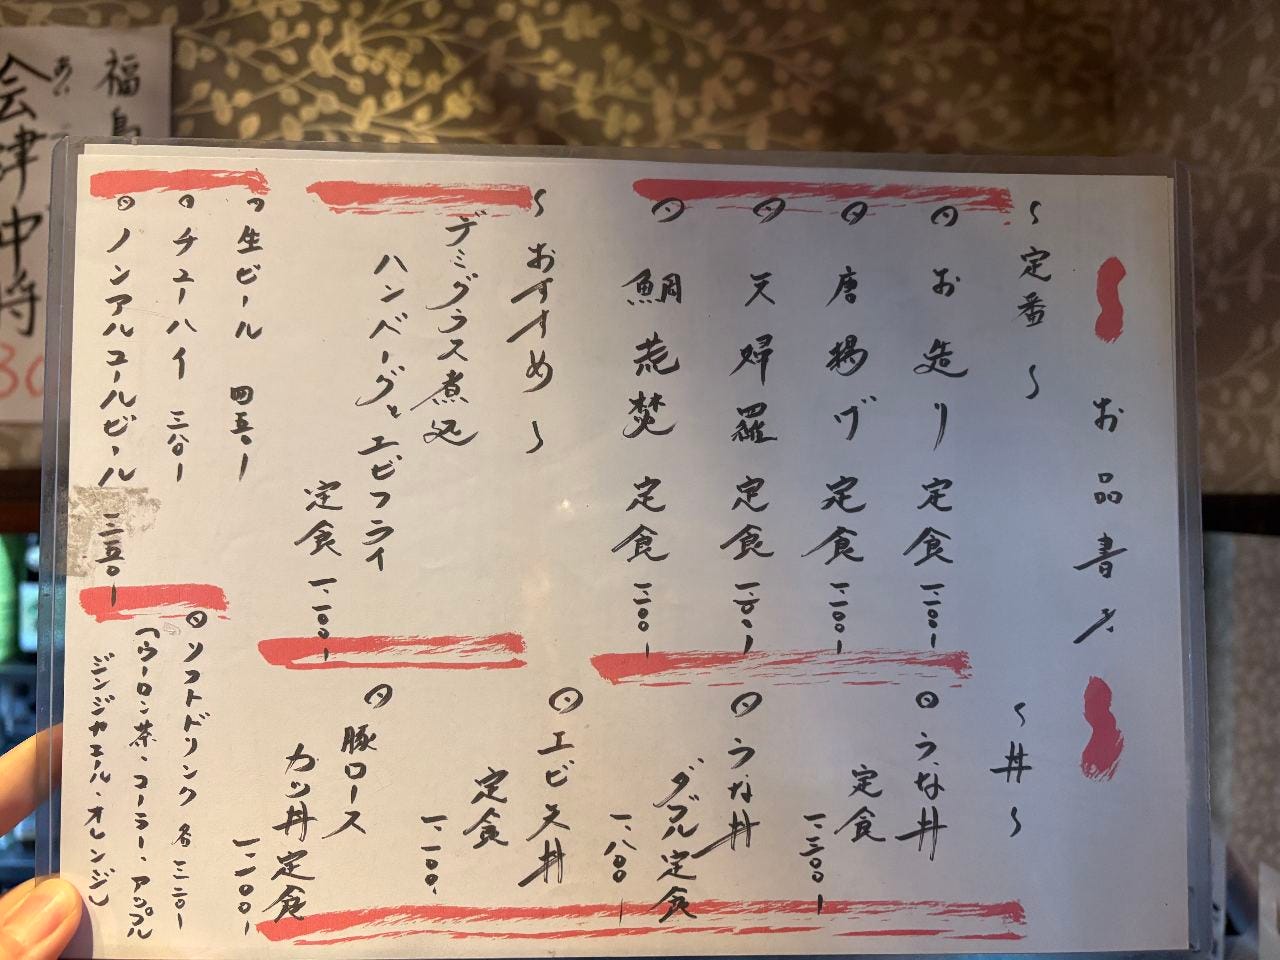 お品書き
〜定番〜
お造り定食 一、一〇〇ー
唐揚げ定食 一、一〇〇ー
天婦羅定食 一、一〇〇ー
鯛荒焚定食 一、一〇〇ー
〜おすすめ〜
デミグラス煮込
ハンバーグとエビフライ
定食 一、一〇〇ー
〜丼〜
うな丼
定食
一、三〇〇ー
うな丼
ダブル定食
一、八〇〇ー
エビ天丼
定食
一、一〇〇
豚ロース
カツ丼定食
一、一〇〇ー
生ビール 四五〇ー
チューハイ 三八〇ー
ノンアルコールビール 三五〇ー
ソフトドリンク 各三二〇ー
(ウーロン茶、コーラー、アップル
ジンジャエール・オレンジ)
福島
会津中将